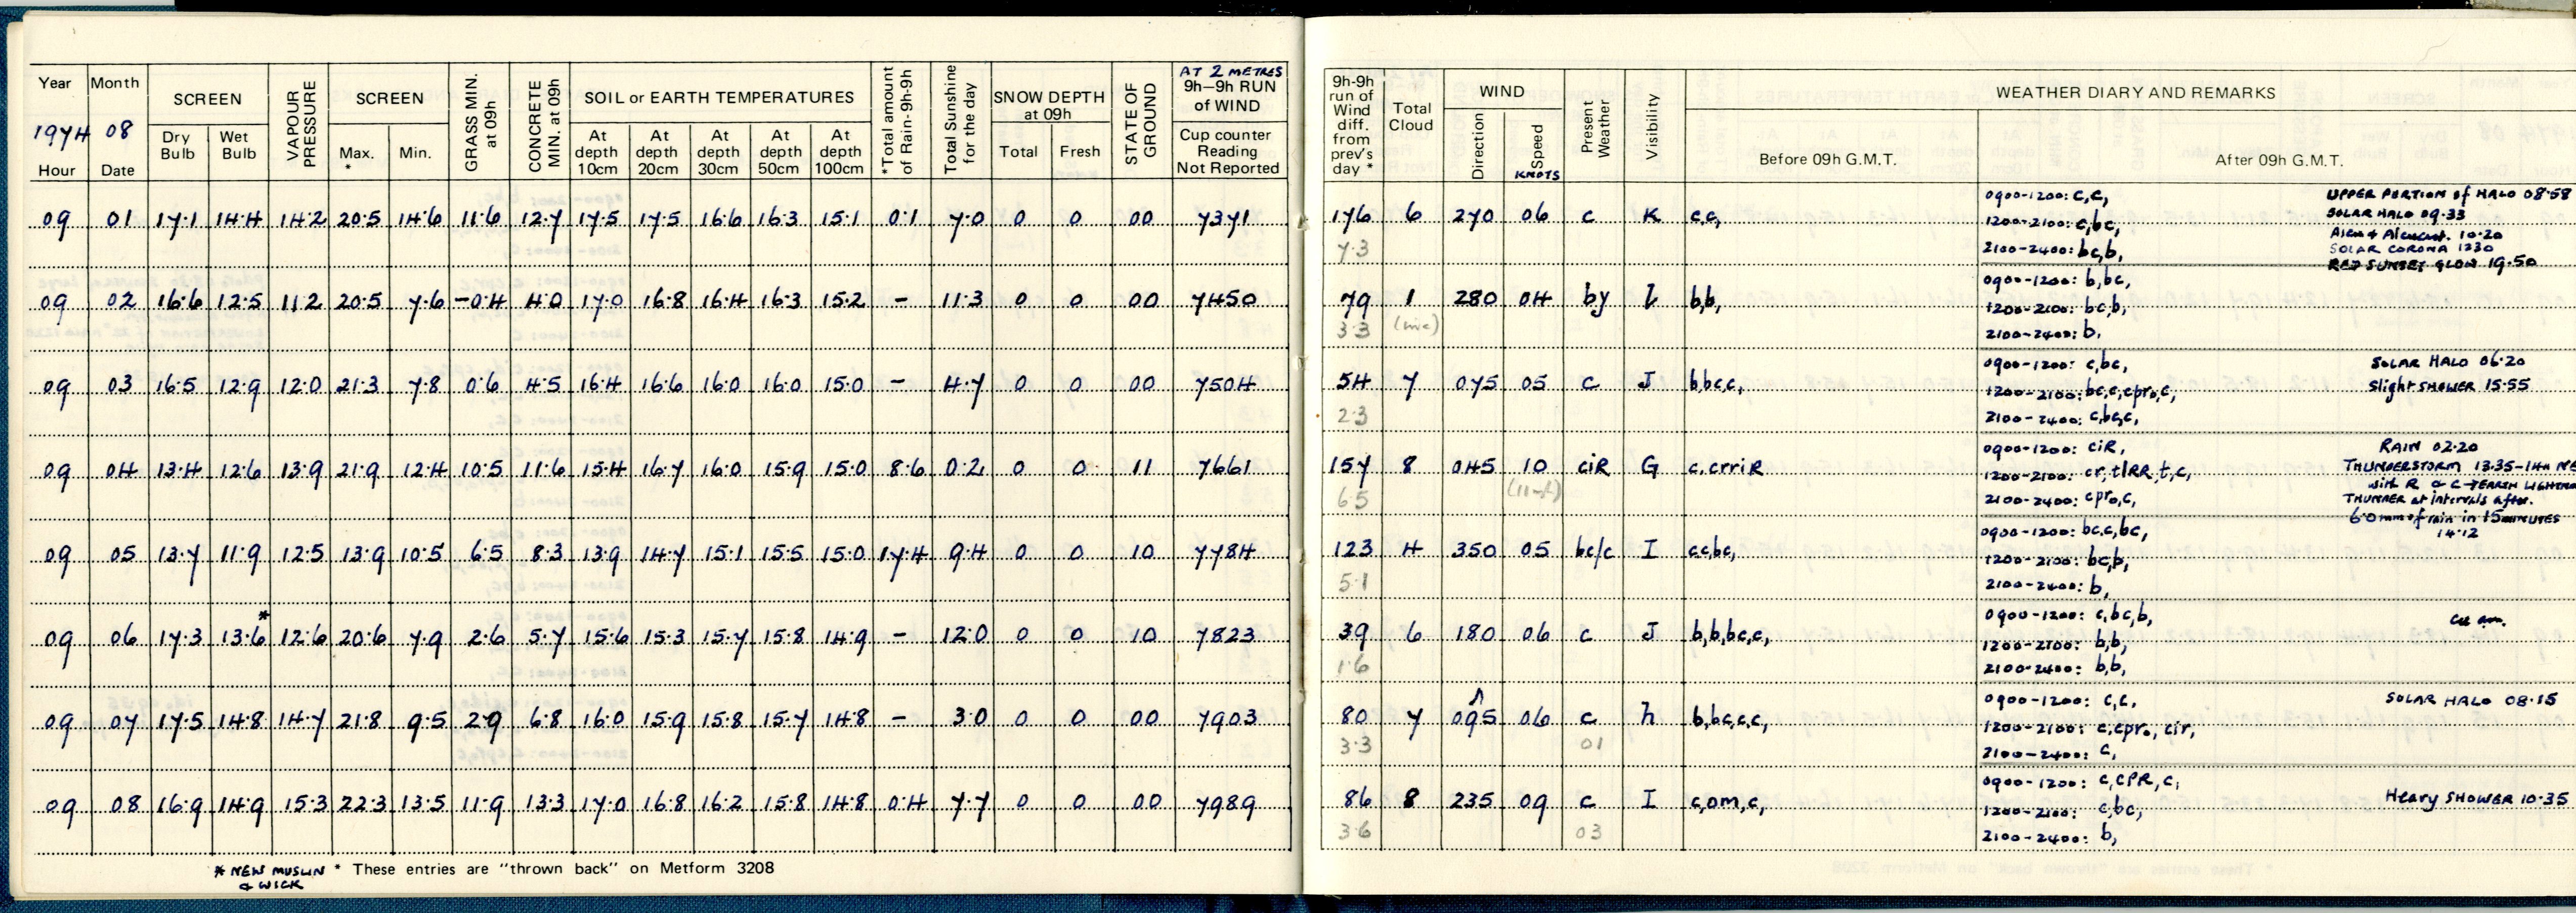 Year Month SCREEN VAPOUR PRESSURE SCREEN GRASS MIN. at 09h CONCRETE MIN. at 09h SOIL or EARTH TEMPERATURES *Total amount of Rain-9h-9h Total Sunshine for the day SNOW DEPTH at 09h STATE OF GROUND AT 2 METRES 9h–9h RUN of WIND
1974 08 Dry Bulb Wet Bulb Max. * Min. At depth 10cm At depth 20cm At depth 30cm At depth 50cm At depth 100cm Total Fresh Cup counter Reading Not Reported
Hour Date
09 01 17.1 14.4 14.2 20.5 14.6 11.6 12.7 17.5 17.5 16.6 16.3 15.1 0.1 7.0 0 0 00 7371
09 02 16.6 12.5 11.2 20.5 7.6 -0.4 4.0 17.0 16.8 16.4 16.3 15.2 - 11.3 0 0 00 7450
09 03 16.5 12.9 12.0 21.3 7.8 0.6 4.5 16.4 16.6 16.0 16.0 15.0 - 4.7 0 0 00 7504
09 04 13.4 12.6 13.9 21.9 12.4 10.5 11.6 15.4 16.7 16.0 15.9 15.0 8.6 0.2 0 0 11 7661
09 05 13.7 11.9 12.5 13.9 10.5 6.5 8.3 13.9 14.7 15.1 15.5 15.0 17.4 9.4 0 0 10 7784
09 06 17.3 13.6* 12.6 20.6 7.9 2.6 5.7 15.6 15.3 15.7 15.8 14.9 - 12.0 0 0 10 7823
09 07 17.5 14.8 14.7 21.8 9.5 2.9 6.8 16.0 15.9 15.8 15.7 14.8 - 3.0 0 0 00 7903
09 08 16.9 14.9 15.3 22.3 13.5 11.9 13.3 17.0 16.8 16.2 15.8 14.8 0.4 7.7 0 0 00 7989
* NEW MUSLIN & WICK
* These entries are "thrown back" on Metform 3208
9h-9h run of Wind diff. from prev's day * Total Cloud WIND Present Weather Visibility WEATHER DIARY AND REMARKS
Direction Speed KNOTS Before 09h G.M.T. After 09h G.M.T.
176 6 270 06 c K c,c,
7.3
0900-1200: c,c,
1200-2100: c,bc,
2100-2400: bc,b,
UPPER PORTION of HALO 08.58
SOLAR HALO 09.33
10.20
SOLAR CORONA 1230
RED SUNSET GLOW 19.50
79 1 280 04 by b,b,
3.3
0900-1200: b,bc,
1200-2100: bc,b,
2100-2400: b,
54 7 075 05 c J b,bc,c,
2.3
0900-1200: c,bc,
1200-2100: bc,c,cpro,c,
2100-2400: c,bc,c,
SOLAR HALO 06.20
Slight SHOWER 15.55
157 8 045 10 ciR G c,crriR
6.5
0900-1200: ciR,
1200-2100: cr,tlRR,t,c,
2100-2400: cpro,c,
RAIN 02.20
THUNDERSTORM 13.35-14H NE
with R & C-EARTH LIGHTNIN
THUNDER at intervals after.
6.0mm of rain in 15 minutes
14.12
123 4 350 05 bc/c I c,c,bc,
5.1
0900-1200: bc,c,bc,
1200-2100: bc,b,
2100-2400: b,
39 6 180 06 c J b,b,bc,c,
1.6
0900-1200: c,bc,b,
1200-2100: b,b,
2100-2400: b,b,
Cu am.
80 7 095 06 c h b,bc,c,c,
3.3 01
0900-1200: c,c,
1200-2100: c,cpro, cir,
2100-2400: c,
SOLAR HALO 08.15
86 8 235 09 c I c,om,c,
3.6 03
0900-1200: c,CPR,c,
1200-2100: c,bc,
2100-2400: b,
Heavy SHOWER 10.35